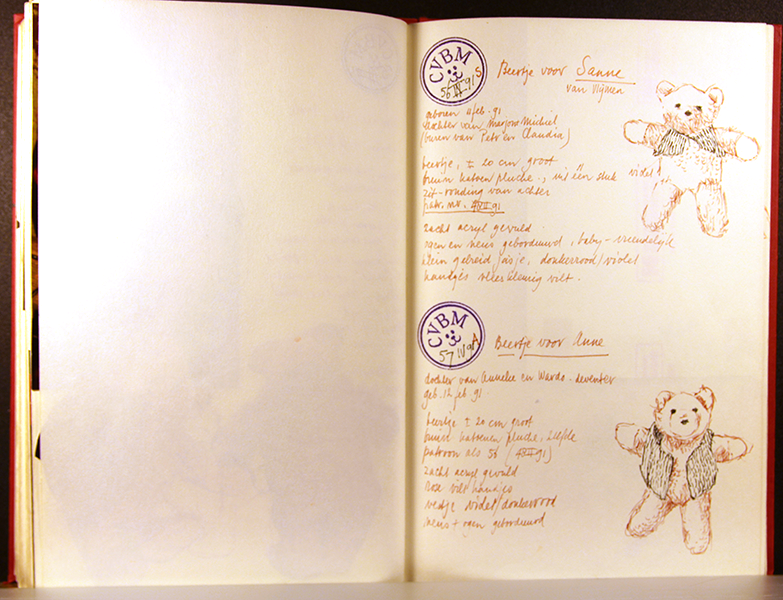 CVBM
56 IV 91 S
Beertje voor Sanne
van Nijmen
geboren 4 feb. 91
dochter van Marjo en Michiel
(buren van Petr en Claudia)
beertje, ± 20 cm groot
bruin katoen pluche, uit één stuk violet
zit-ronding van achter
patr. nr. 91
zacht acryl gevuld
ogen en neus geborduurd, baby-vriendelijk
klein gebreid jasje, donkerrood/violet
handjes vleeskleurig vilt.
CVBM
57 IV 91 A
Beertje voor Anne
dochter van Anneke en Wardo. deventer
geb. 12 feb. 91.
beertje ± 20 cm groot
bruin katoenen pluche, zelfde
patroon als 56 ( 91)
zacht acryl gevuld
rose vilt handjes
vestje violet/donkerrood
neus + ogen geborduurd